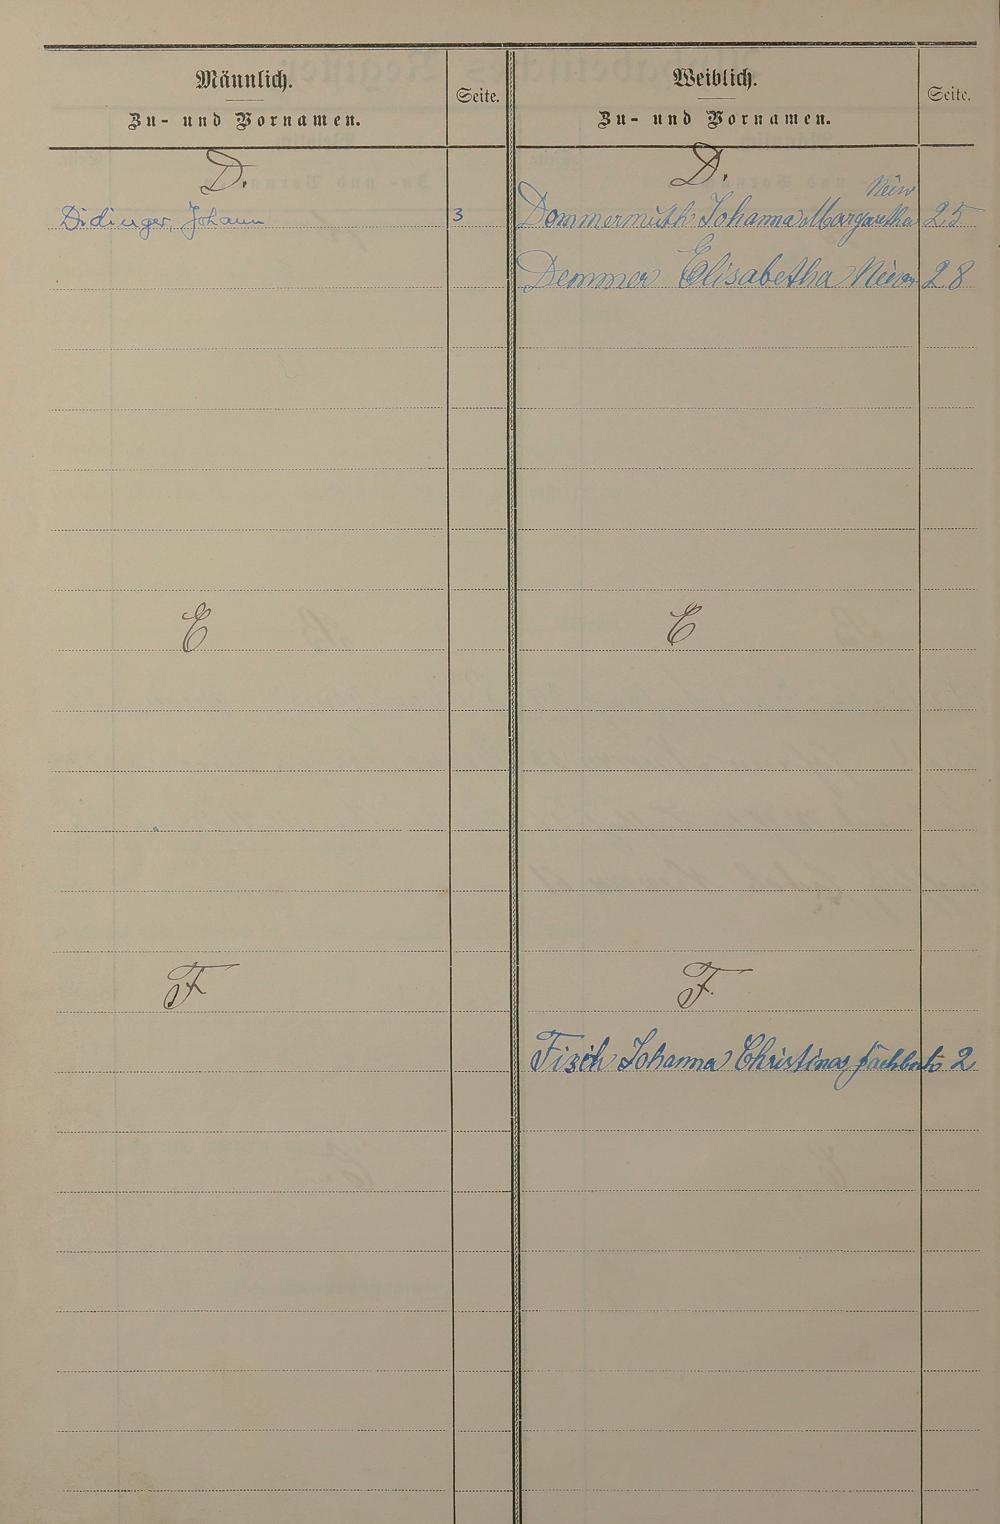 Männlich.
Zu- und Vornamen.
Seite.
Weiblich.
Zu- und Vornamen.
Seite.
D.
Didinger, Johann 3
D.
Dommermuth Johanna Margaretha 25
Demmer Elisabetha 28
E
E
F
F.
Fisch Johanna Christina 2